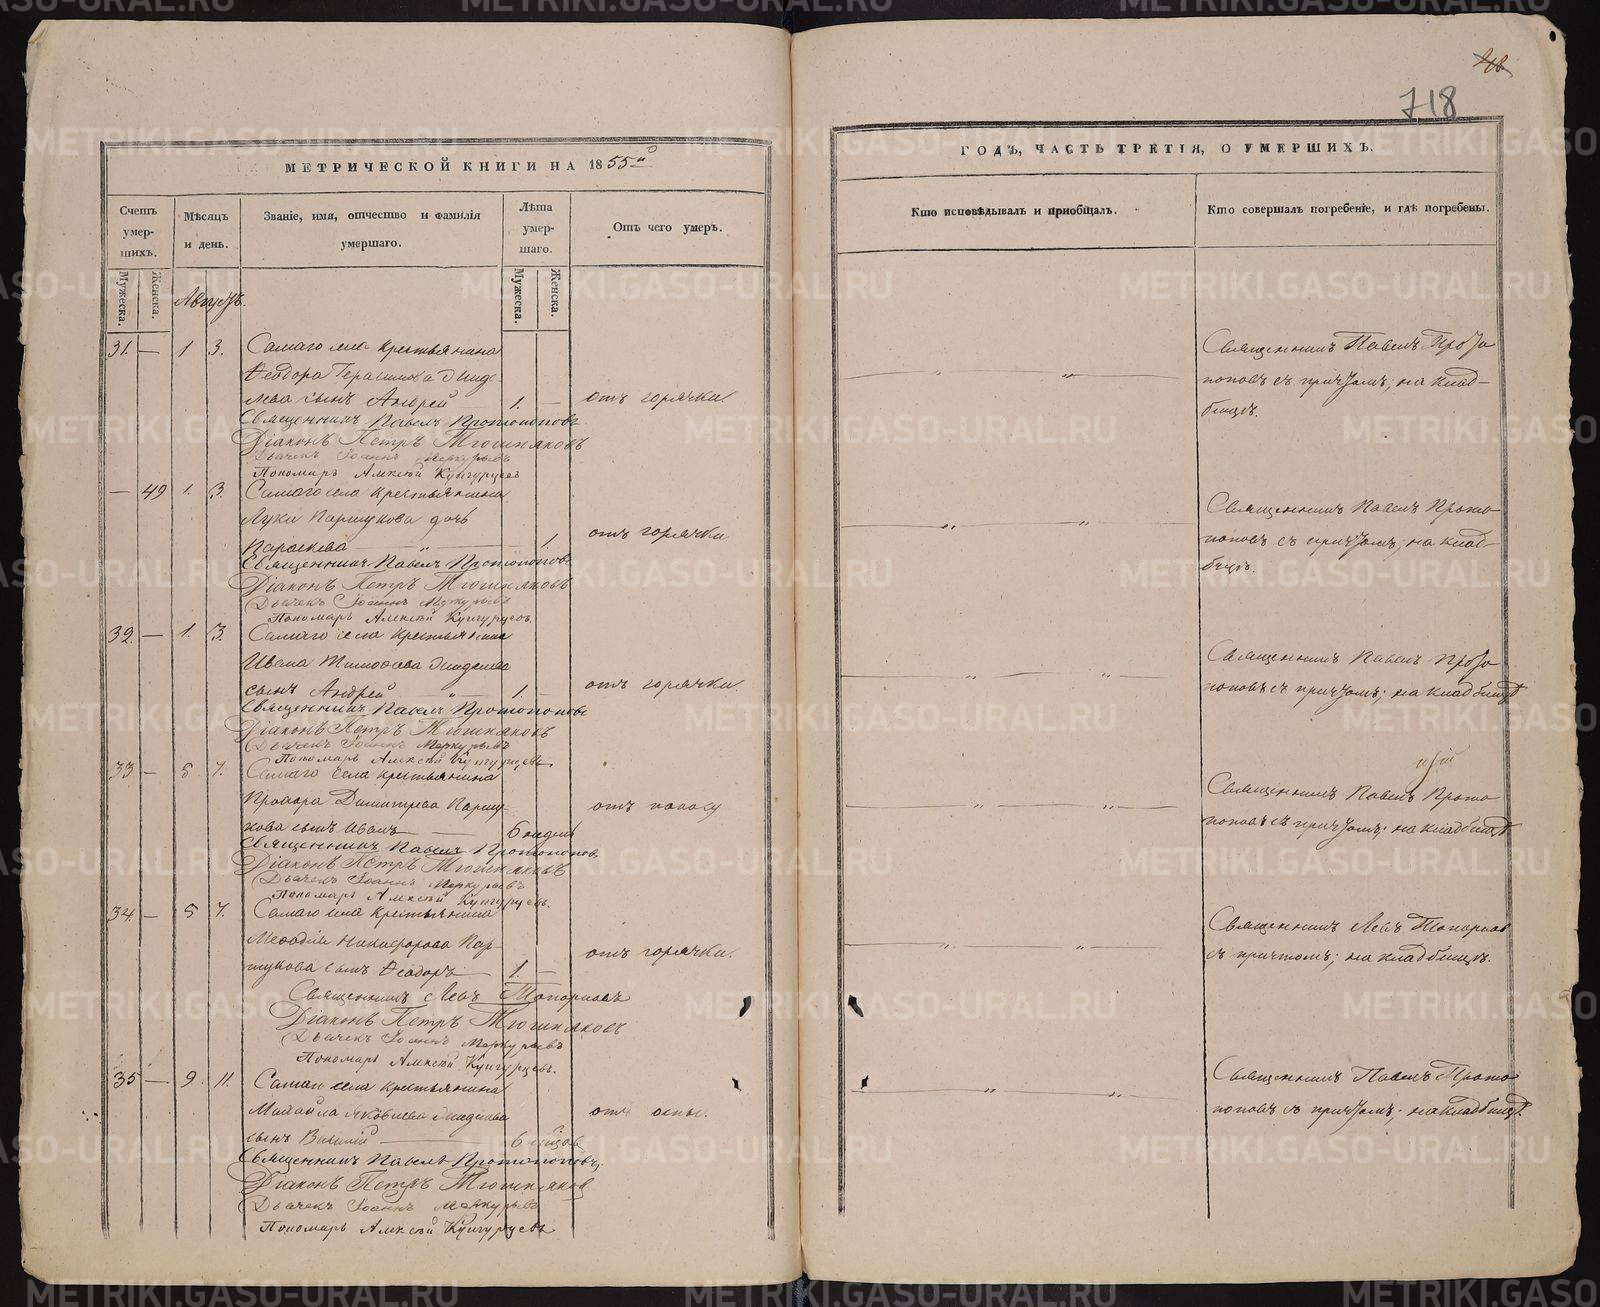 718
МЕТРИЧЕСКОЙ КНИГИ НА 1855й
ГОДЪ, ЧАСТЬ ТРЕТІЯ, О УМЕРШИХЪ.
Счетъ умер-
шихъ.
Мужеска.
Женска.
Мѣсяцъ
и день.
Званіе, имя, отчество и фамилія
умершаго.
Лѣта
умер-
шаго.
Мужеска.
Женска.
Отъ чего умеръ.
Кто исповѣдывалъ и пріобщалъ.
Кто совершалъ погребеніе, и гдѣ погребены.
Августъ.
31. — 1 3. Самаго села крестьянина
Ѳеодора Герасимова
сынъ Андрей 1. — отъ горячки.
Священникъ Павелъ Прото
поповъ съ причтомъ; на клад-
бищѣ.
Священникъ Павелъ Протопоповъ
Діаконъ Петръ
Дьячекъ Іоаннъ Меркурьевъ
Пономарь Алексѣй Кунгурцевъ
— 49 1. 3. Самаго села крестьянина
Луки Паршукова дочь
Параскева — " — 1. отъ горячки
Священникъ Павелъ Прото
поповъ съ причтомъ; на клад-
бищѣ.
Священникъ Павелъ Протопоповъ
Діаконъ Петръ
Дьячекъ Іоаннъ Меркурьевъ
Пономарь Алексѣй Кунгурцевъ.
32 — 1. 3. Самаго села крестьянина
Ивана Тимоѳеева
сынъ Андрей — " — 1. — отъ горячки.
Священникъ Павелъ Прото
поповъ съ причтомъ; на кладбищѣ
Священникъ Павелъ Протопоповъ
Діаконъ Петръ
Дьячекъ Іоаннъ Меркурьевъ
Пономарь Алексѣй Кунгурцевъ
33 — 5 7. Самаго села крестьянина
Димитріева Паршу-
кова сынъ Иванъ — 6 недель отъ поносу
Священникъ Павелъ Прото
поповъ съ причтомъ; на кладбищѣ
Священникъ Павелъ Протопоповъ
Діаконъ Петръ
Дьячекъ Іоаннъ Меркурьевъ
Пономарь Алексѣй Кунгурцевъ.
34 — 5 7. Самаго села крестьянина
Меѳодія Никифорова Пар-
шукова сынъ Ѳеодоръ — 1. — отъ горячки.
Священникъ Левъ Топорковъ
съ причтомъ; на кладбищѣ.
Священникъ Левъ Топорковъ
Діаконъ Петръ
Дьячекъ Іоаннъ Меркурьевъ
Пономарь Алексѣй Кунгурцевъ.
35 — 9 11. Самаго села крестьянина
Михаила Яковлева
сынъ Василій — 6 отъ оспы.
Священникъ Павелъ Прото
поповъ съ причтомъ; на кладбищѣ.
Священникъ Павелъ Протопоповъ
Діаконъ Петръ
Дьячекъ Іоаннъ Меркурьевъ
Пономарь Алексѣй Кунгурцевъ
METRIKI.GASO-URAL.RU